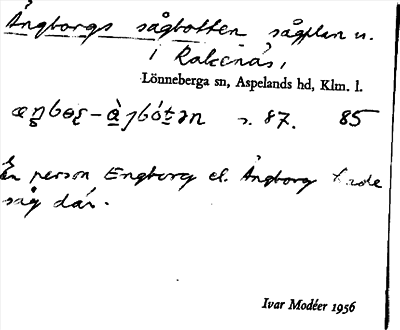 Ångborgs sågbotten sågplan u.
i Rakenäs,
Lönneberga sn, Aspelands hd, Klm. l.
s. 87. 85
En person Engborg el. Ångborg hade
såg där.
Ivar Modéer 1956